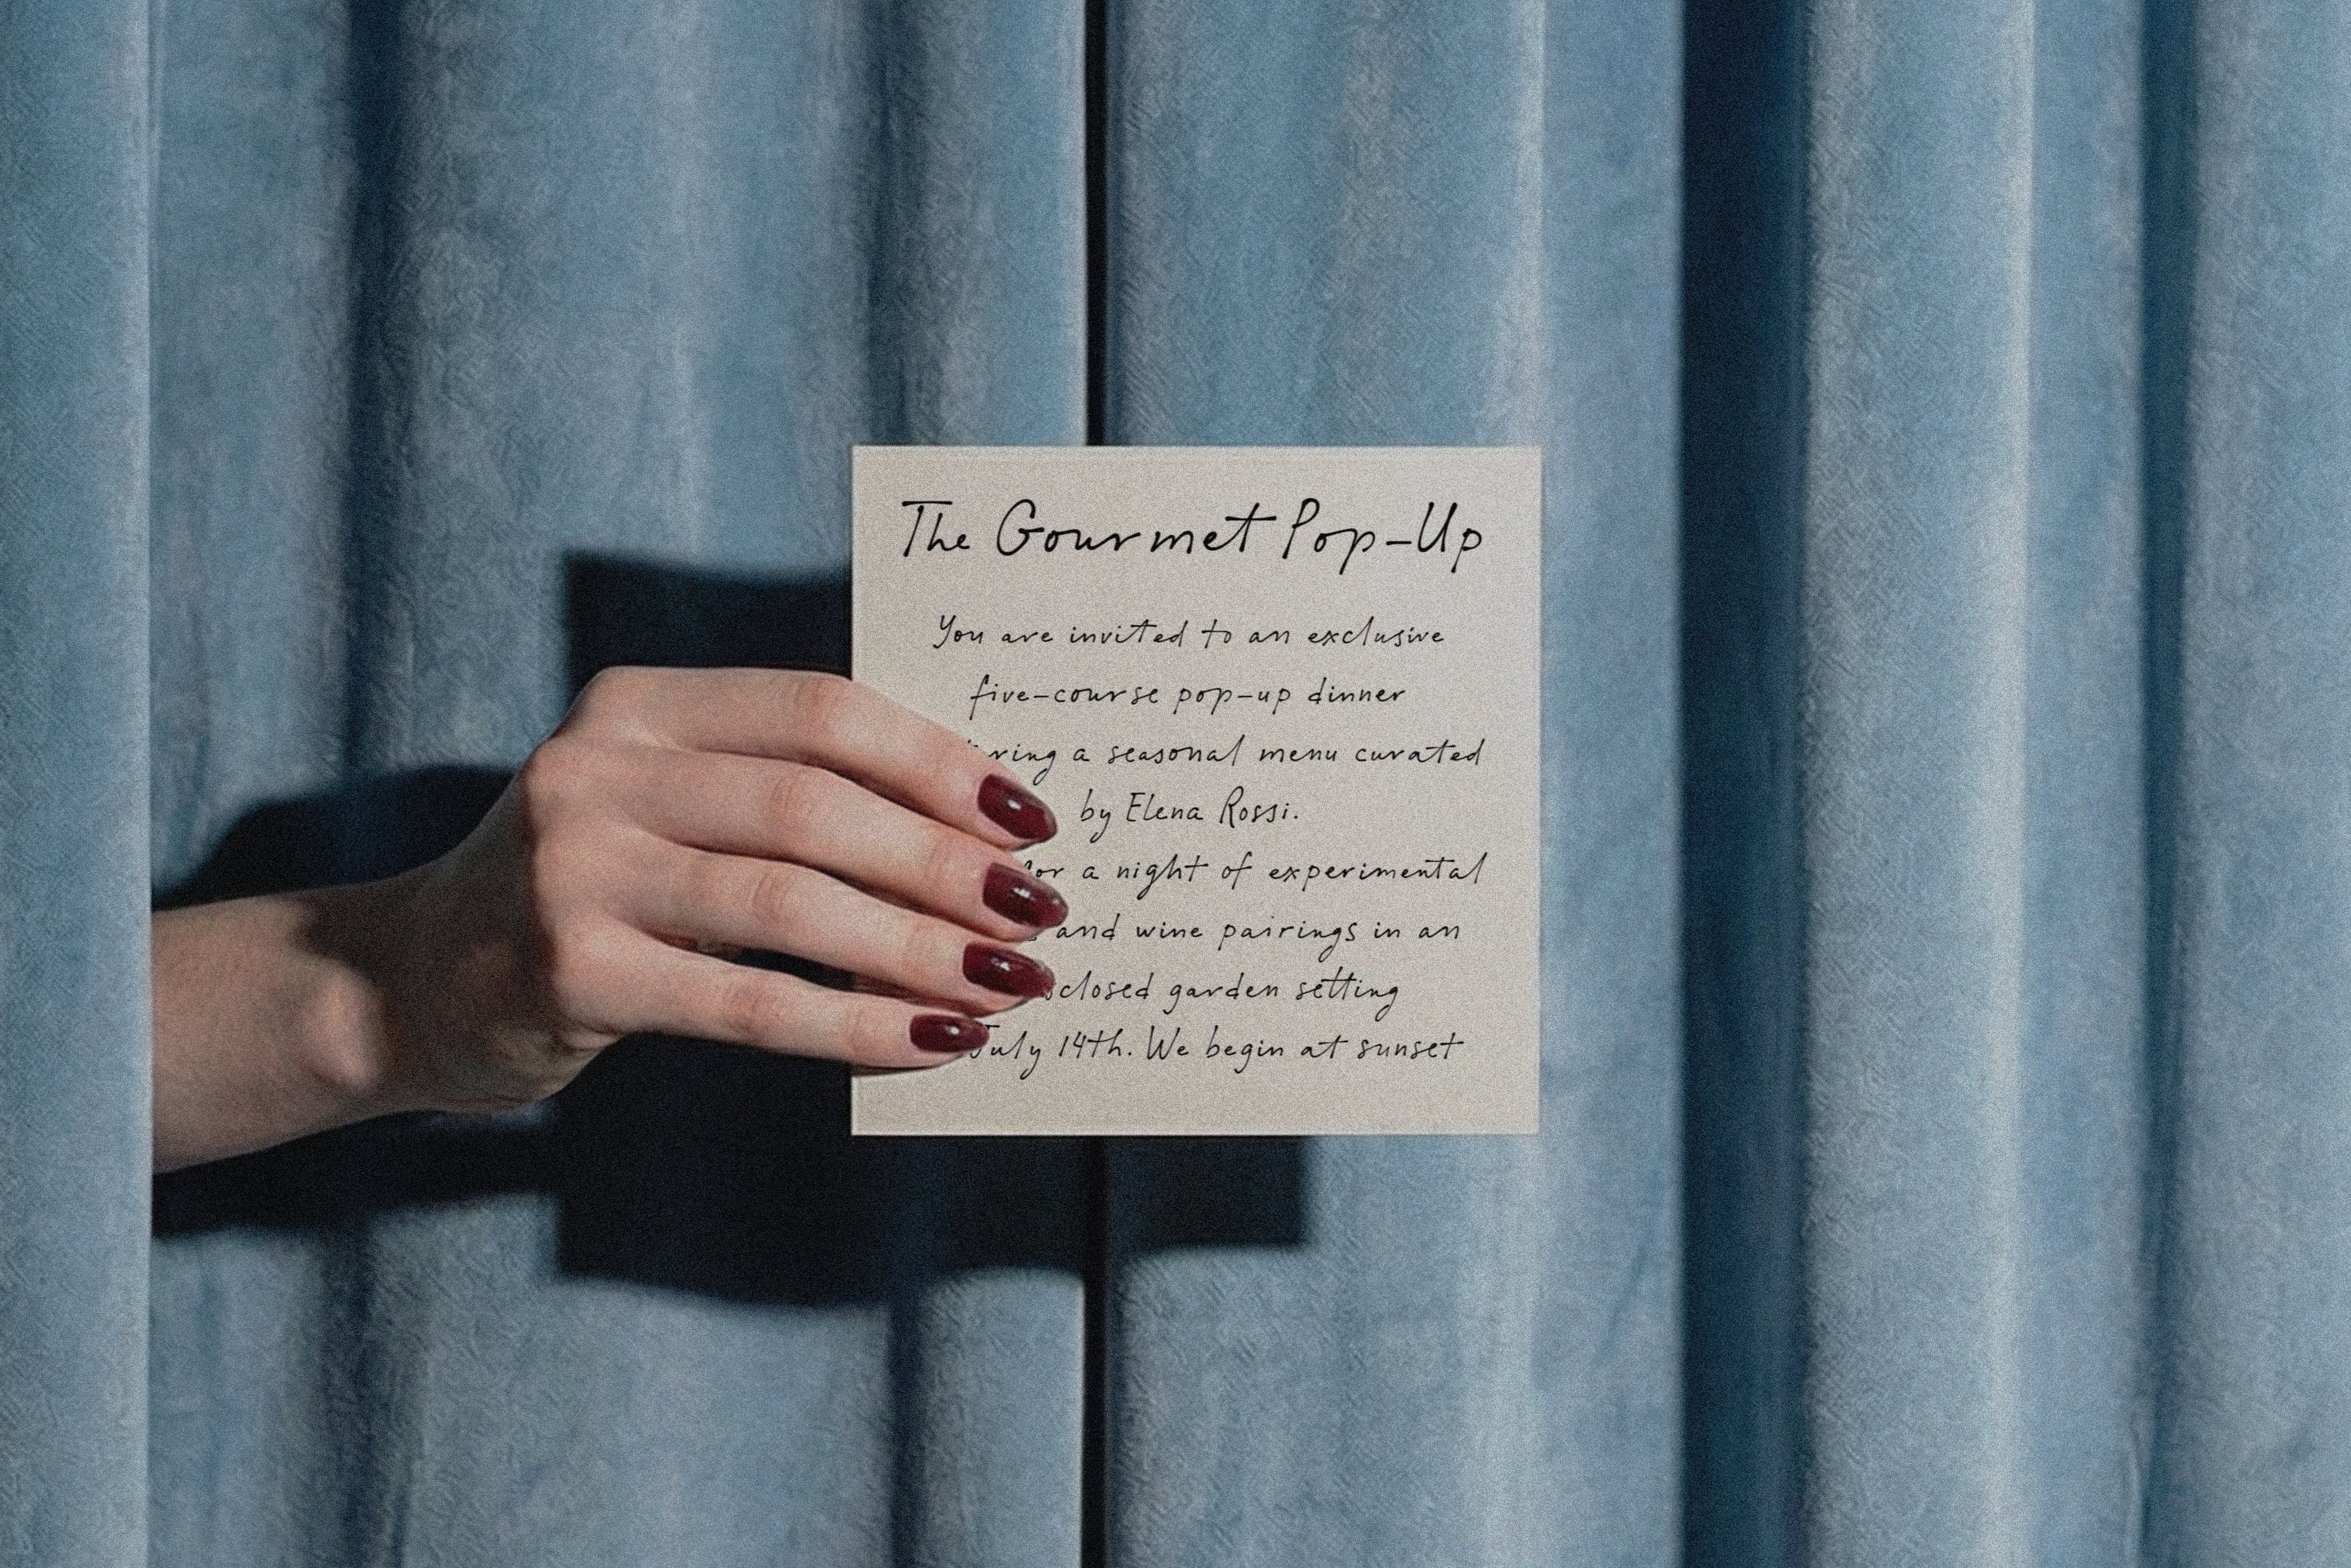 The Gourmet Pop-Up
You are invited to an exclusive
five-course pop-up dinner
a seasonal menu curated
by Elena Rossi.
a night of experimental
and wine pairings in an
garden setting
July 14th. We begin at sunset